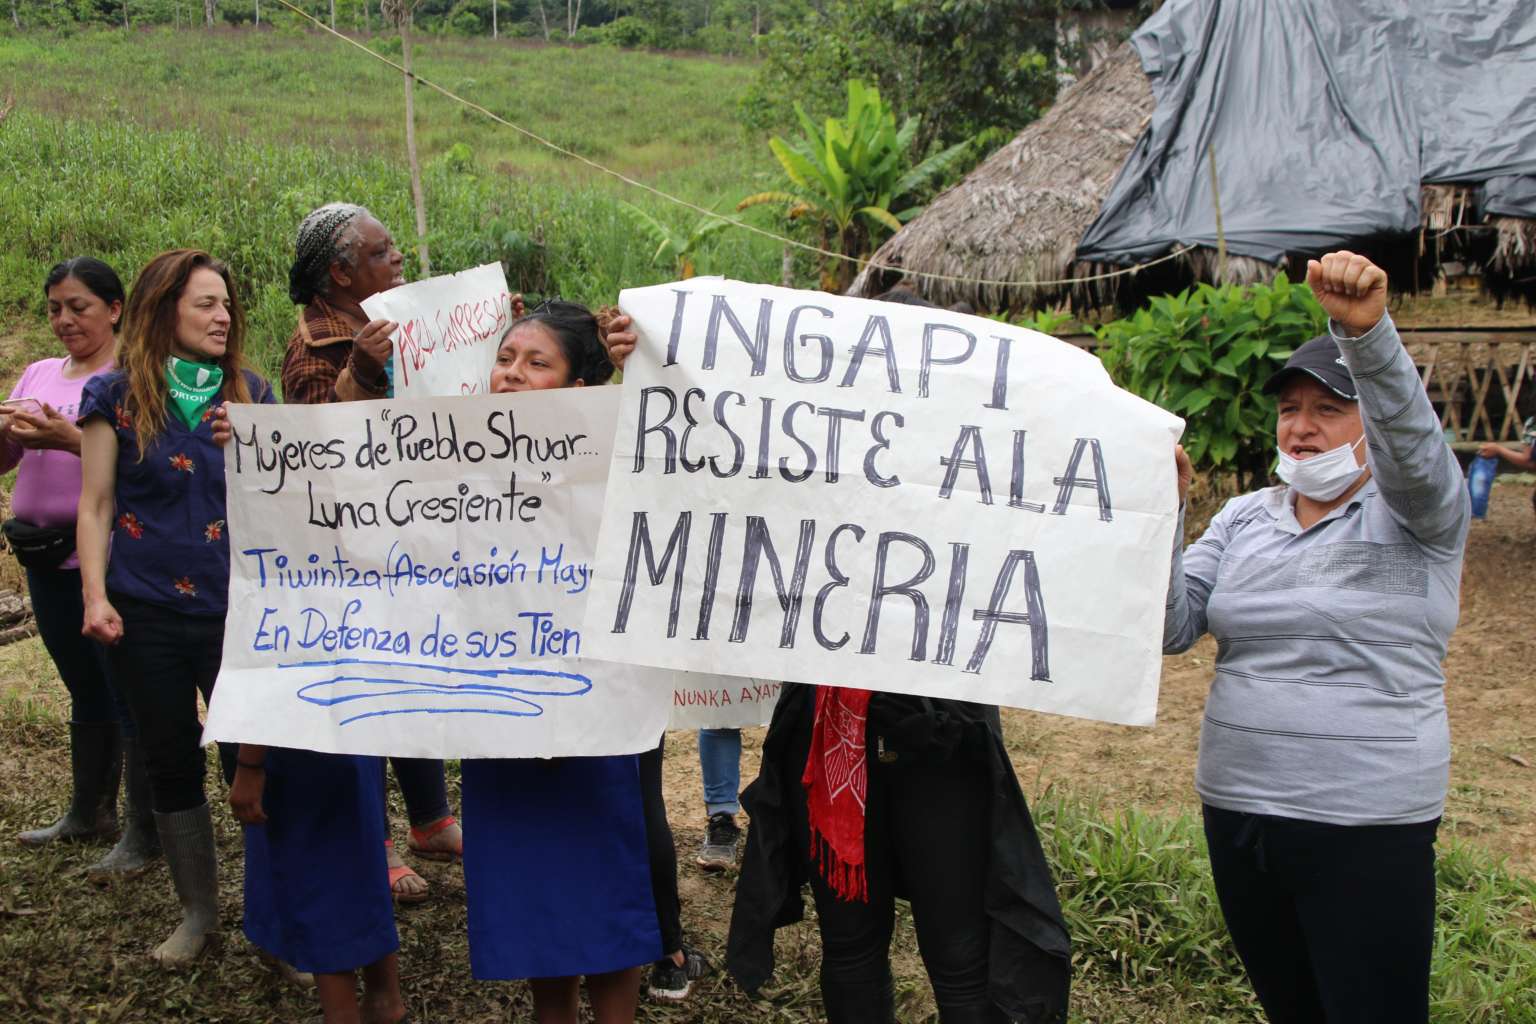 EMPRESAS
Mujeres de "Pueblo Shuar....
Luna Cresiente"
Tiwintza (Asociasión May
En Defenza de sus Tien
INGAPI
RESISTE A LA
MINERIA
NUNKA AYAM